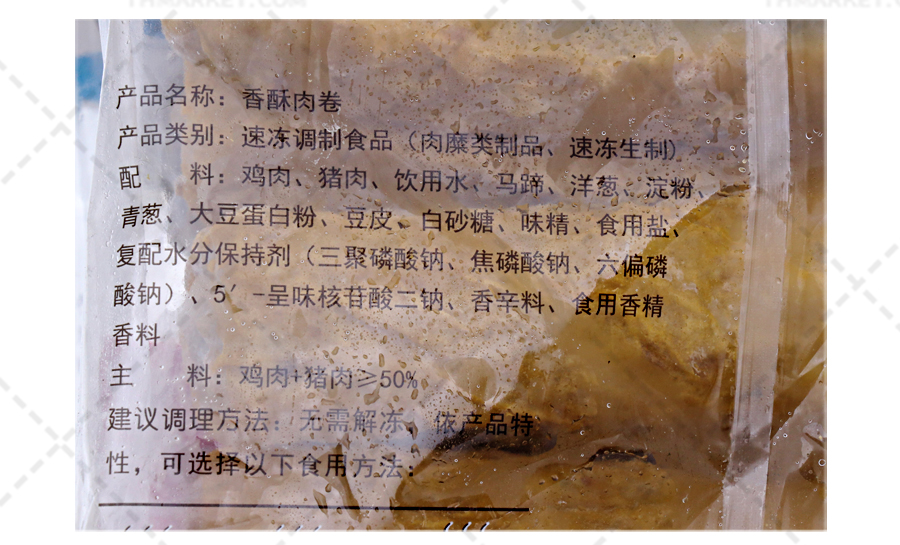 THMARKET.COM
THMARKET.COM
产品名称：香酥肉卷
产品类别：速冻调制食品（肉糜类制品、速冻生制）
配 料：鸡肉、猪肉、饮用水、马蹄、洋葱、淀粉、
青葱、大豆蛋白粉、豆皮、白砂糖、味精、食用盐、
复配水分保持剂（三聚磷酸钠、焦磷酸钠、六偏磷
酸钠）、5′-呈味核苷酸二钠、香辛料、食用香精
香料
主 料：鸡肉+猪肉≥50%
建议调理方法：无需解冻，依产品特
性，可选择以下食用方法：